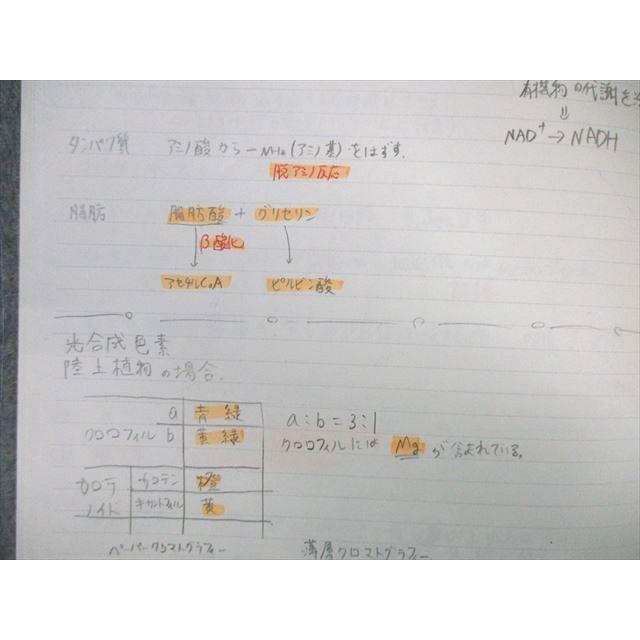 有機物の代謝を
⇓
NAD⁺→NADH
タンパク質 アミノ酸から-NH₂(アミノ基)をはずす.
脱アミノ反応
脂肪 脂肪酸 + グリセリン
β酸化
アセチルCoA ピルビン酸
光合成色素
陸上植物の場合.
クロロフィル a 青緑
b 黄緑
a:b=3:1
クロロフィルには Mg が含まれている。
カロテノイド カロテン 橙
キサントフィル 黄
ペーパークロマトグラフィー 薄層クロマトグラフィー